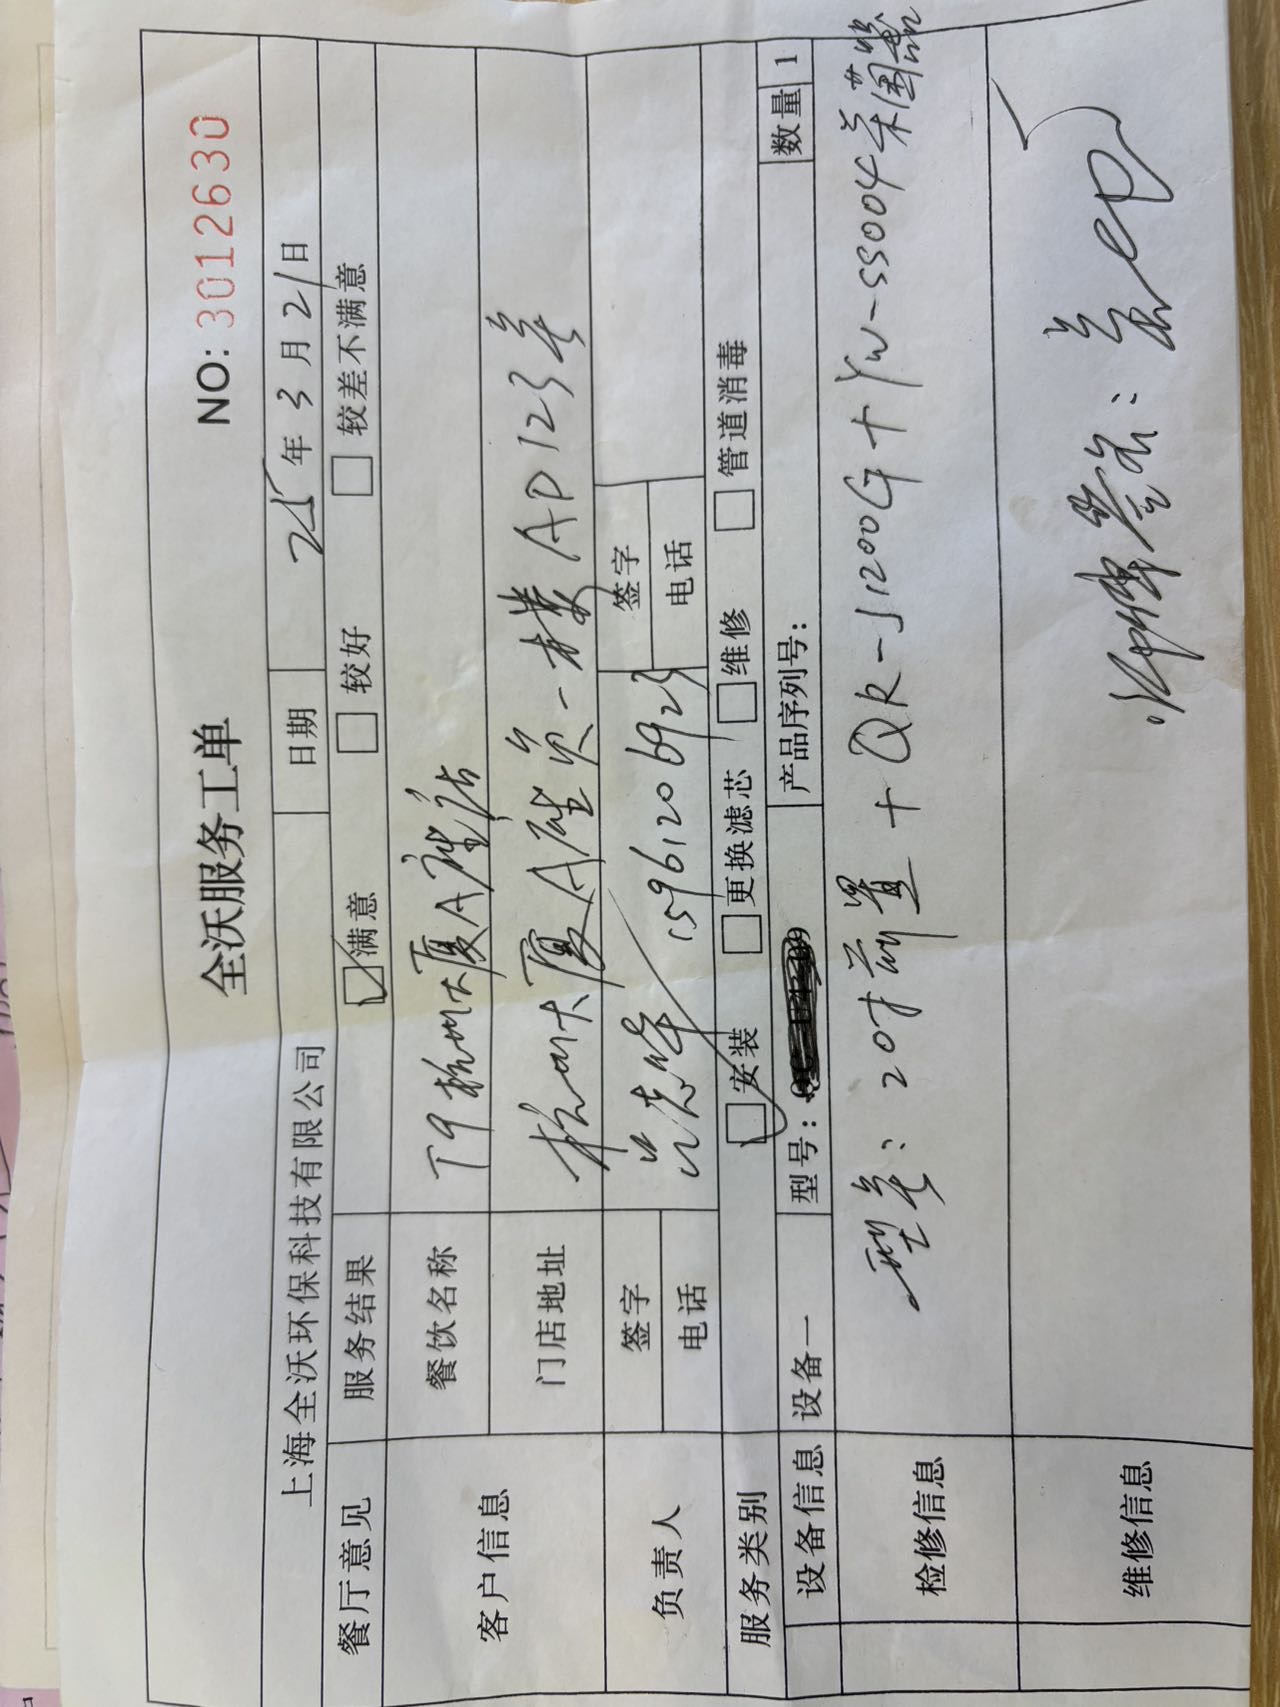 全沃服务工单
NO: 3012630
上海全沃环保科技有限公司 日期 25年3月21日
餐厅意见 服务结果 ☑满意 □较好 □较差不满意
客户信息 餐饮名称 T9杭州大厦A座店
门店地址 杭州大厦A座负一楼AP123号
负责人 签字 签字
电话 15961206923 电话
服务类别 ☑安装 □更换滤芯 □维修 □管道消毒
设备信息 设备一 型号: 产品序列号: 数量 1
检修信息 型号: 20寸前置+QR-J1200G+YW-SS004杀菌器
维修信息